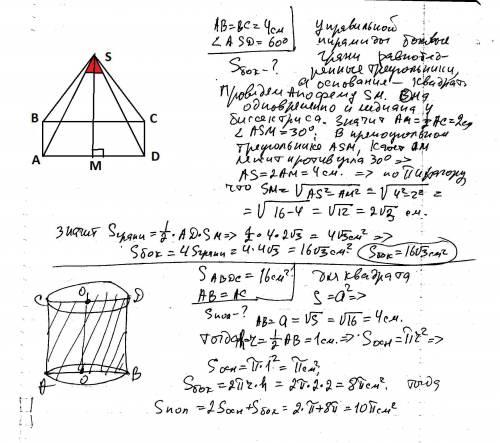 S
B C
A M D
AB=BC=4см
∠ASD=60°
Sбок-?
У правильной
пирамиды боковые
грани равнобед-
ренные треугольники,
а основание - квадрат
Проведем апофему SM. Она
одновременно и медиана и
биссектриса. Значит AM=½AC=2см
∠ASM=30°; В прямоугольном
треугольнике ASM, катет AM
лежит против угла 30° =>
AS=2AM=4см. => по Пифагору
что SM=√AS²-AM² = √4²-2² =
= √16-4 = √12 = 2√3 см.
Значит Sграни=½·AD·SM => ½·4·2√3 = 4√3см² =>
Sбок=4Sграни=4·4√3=16√3см² Sбок=16√3см²
C O D
A O B
SABDC=16см²
AB=AC
Sпол-?
для квадрата
S=a² =>
AB=a=√S=√16=4см.
тогда R=r=½AB=1см. => Sосн=πr² =>
Sосн=π·1²=πсм²,
Sбок=2πr·h=2π·2·2=8πсм². тогда
Sпол=2Sосн+Sбок=2·π+8π=10πсм²